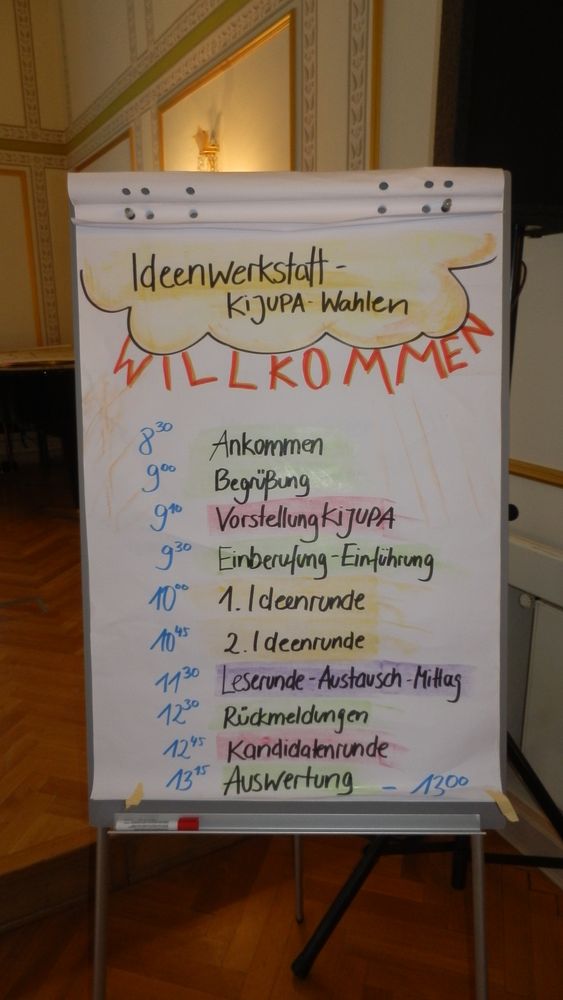 Ideenwerkstatt-
KiJUPA-Wahlen
WILLKOMMEN
8³⁰ Ankommen
9⁰⁰ Begrüßung
9¹⁰ Vorstellung KiJUPA
9³⁰ Einberufung-Einführung
10⁰⁰ 1. Ideenrunde
10⁴⁵ 2. Ideenrunde
11³⁰ Leserunde-Austausch-Mittag
12³⁰ Rückmeldungen
12⁴⁵ Kandidatenrunde
13¹⁵ Auswertung - 13⁰⁰